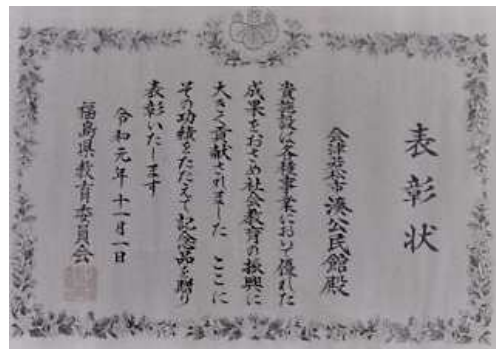 表彰状
会津若松市湊公民館殿
貴施設は各種事業において優れた
成果をおさめ社会教育の振興に
大きく貢献されました ここに
その功績をたたえて記念品を贈り
表彰いたします
令和元年十一月一日
福島県教育委員会